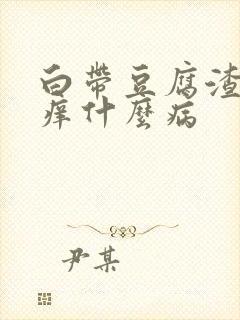 白帶豆腐渣
痒什麼病
尹某